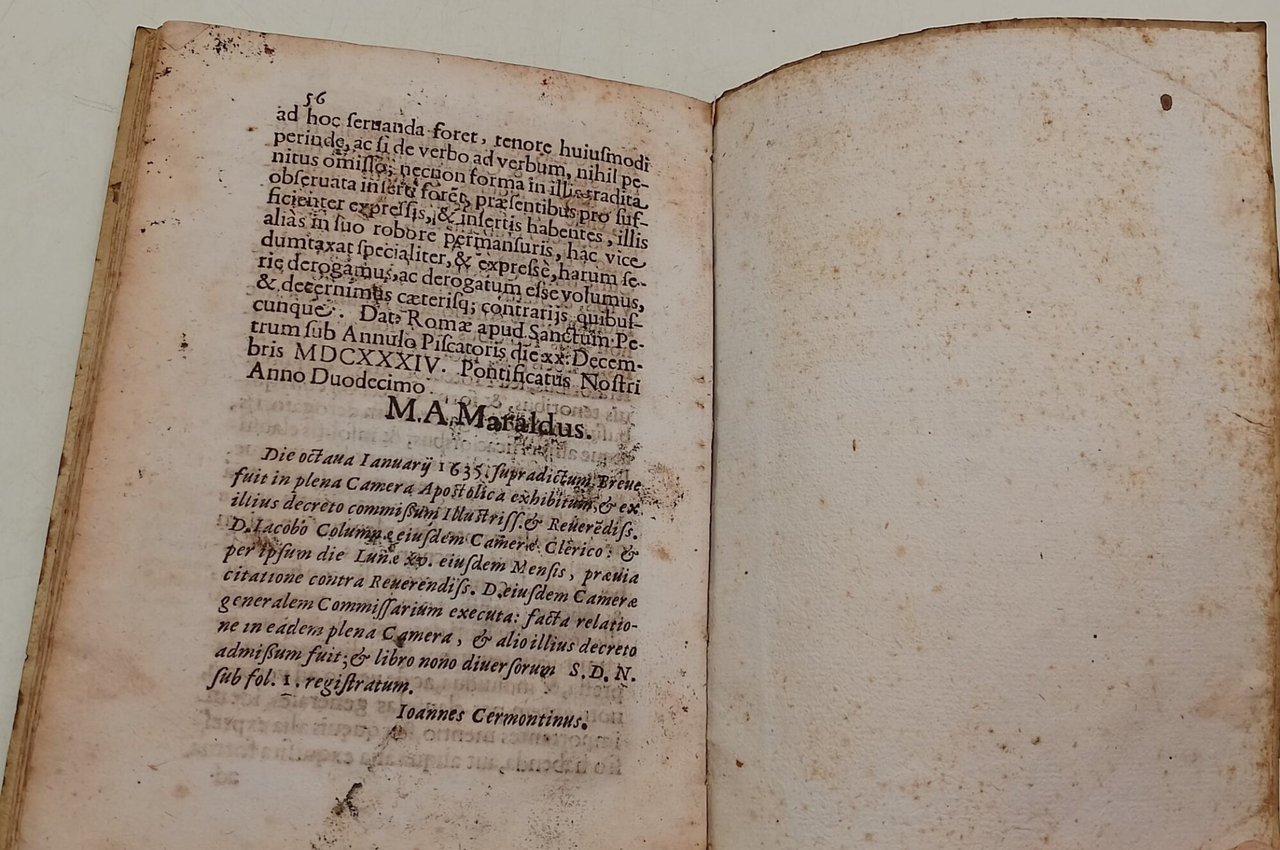 56
ad hoc ſeruanda foret, tenore huiuſmodi
perinde, ac ſi de verbo ad verbum, nihil pe-
nitus omiſſo; necnon forma in illis tradita
obſeruata inſerti forēt, præſentibus pro ſuf-
ficienter expreſſis, & inſertis habentes, illis
aliàs in ſuo robore permanſuris, hac vice
dumtaxat ſpecialiter, & expreſsè, harum ſe-
rie derogamus, ac derogatum eſse volumus,
& decernimus cæteriſq; contrarijs quibuſ-
cunque. Dat. Romæ apud Sanctum Pe-
trum ſub Annulo Piſcatoris die xx. Decem-
bris MDCXXXIV. Pontificatus Noſtri
Anno Duodecimo.
M. A. Maraldus.
Die octaua Ianuarij 1635. ſupradictum Breue
fuit in plena Camera Apoſtolica exhibitum, & ex
illius decreto commiſſum Illuſtriſſ. & Reuerēdiſs.
D. Iacobo Columnæ eiuſdem Cameræ Clerico: &
per ipſum die Lunæ xv. eiuſdem Menſis, præuia
citatione contra Reuerendiſs. D. eiuſdem Cameræ
generalem Commiſſarium executa: facta relatio-
ne in eadem plena Camera, & alio illius decreto
admiſſum fuit; & libro nono diuerſorum S. D. N.
ſub fol. 1. regiſtratum.
Ioannes Cermontinus.